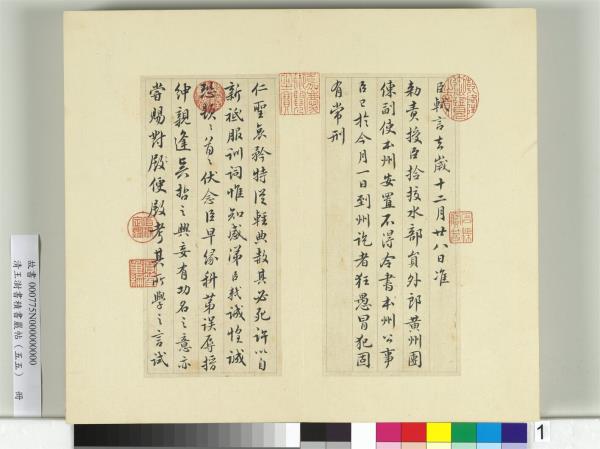 臣軾言去歲十二月廿八日准
勅責授臣檢校水部員外郎黃州團
練副使本州安置不得僉書本州公事
臣已於今月一日到州訖者狂愚冒犯固
有常刑
仁聖哀矜特從輕典赦其必死許以自
新祗服訓詞惟知感涕臣軾誠惶誠
恐頓〻首〻伏念臣早緣科第誤忝搢
紳親逢睿哲之興妄有功名之意亦
嘗賜對殿便殿考其所學之言試
故書 000775N000000000
清王澍書積書巖帖(五五) 冊
1